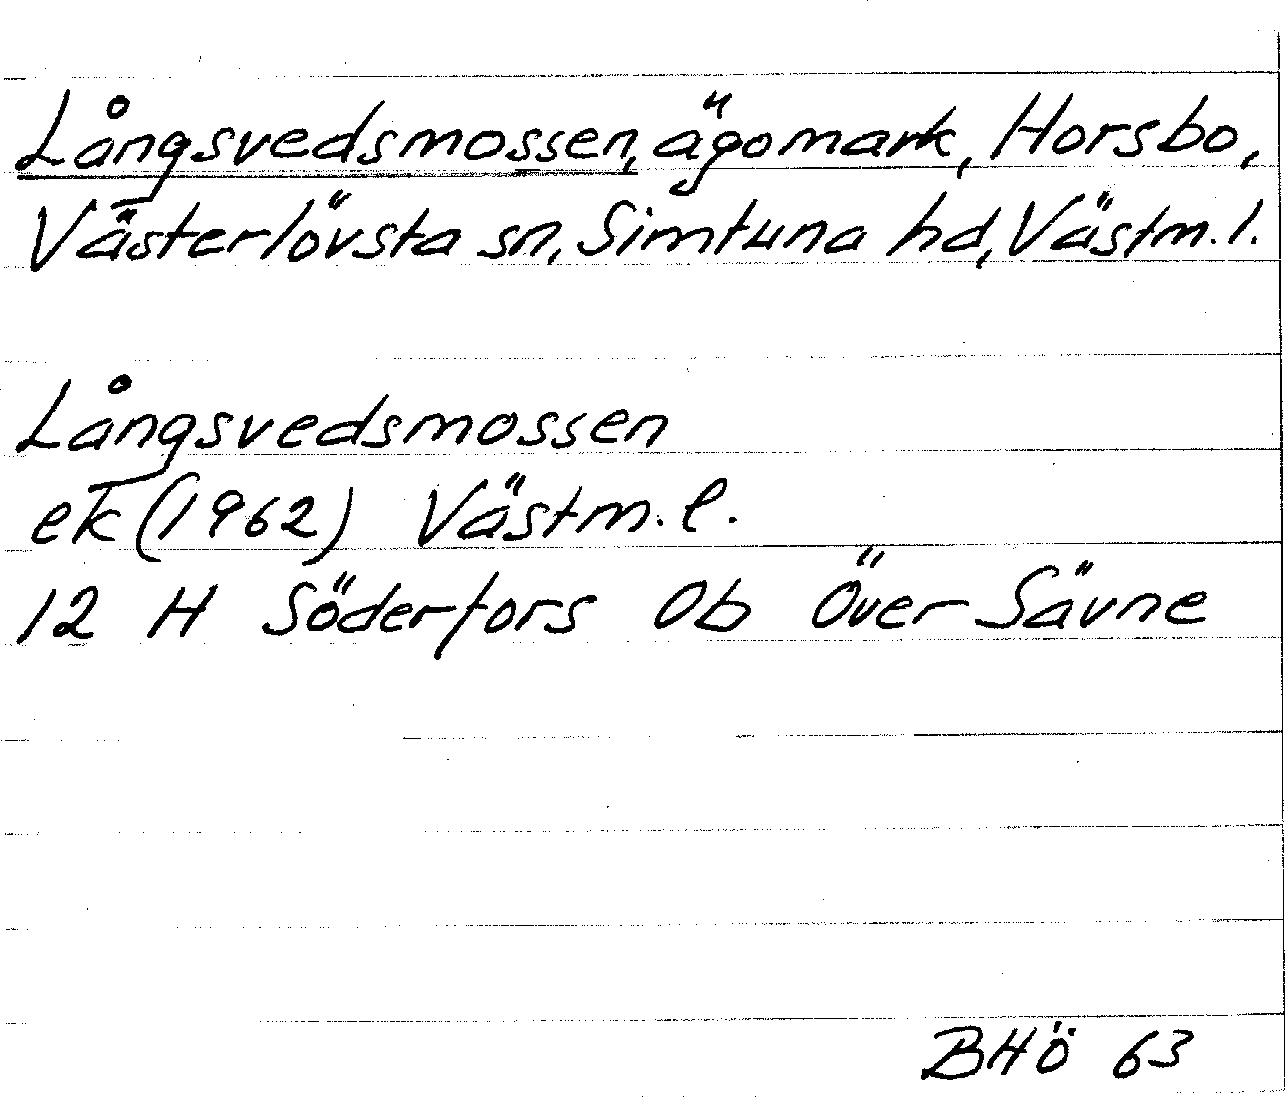 Långsvedsmossen, ägomark, Horsbo,
Västerlövsta sn, Simtuna hd, Västm. l.
Långsvedsmossen
ek (1962) Västm. l.
12 H Söderfors 0b Över-Sävne
BHÖ 63